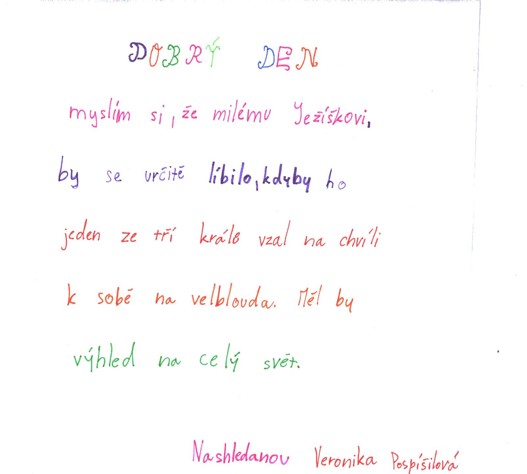 DOBRÝ DEN
myslím si, že milému Ježíškovi,
by se určitě líbilo, kdyby ho
jeden ze tří králů vzal na chvíli
k sobě na velblouda. Měl by
výhled na celý svět.
Nashledanou Veronika Pospíšilová